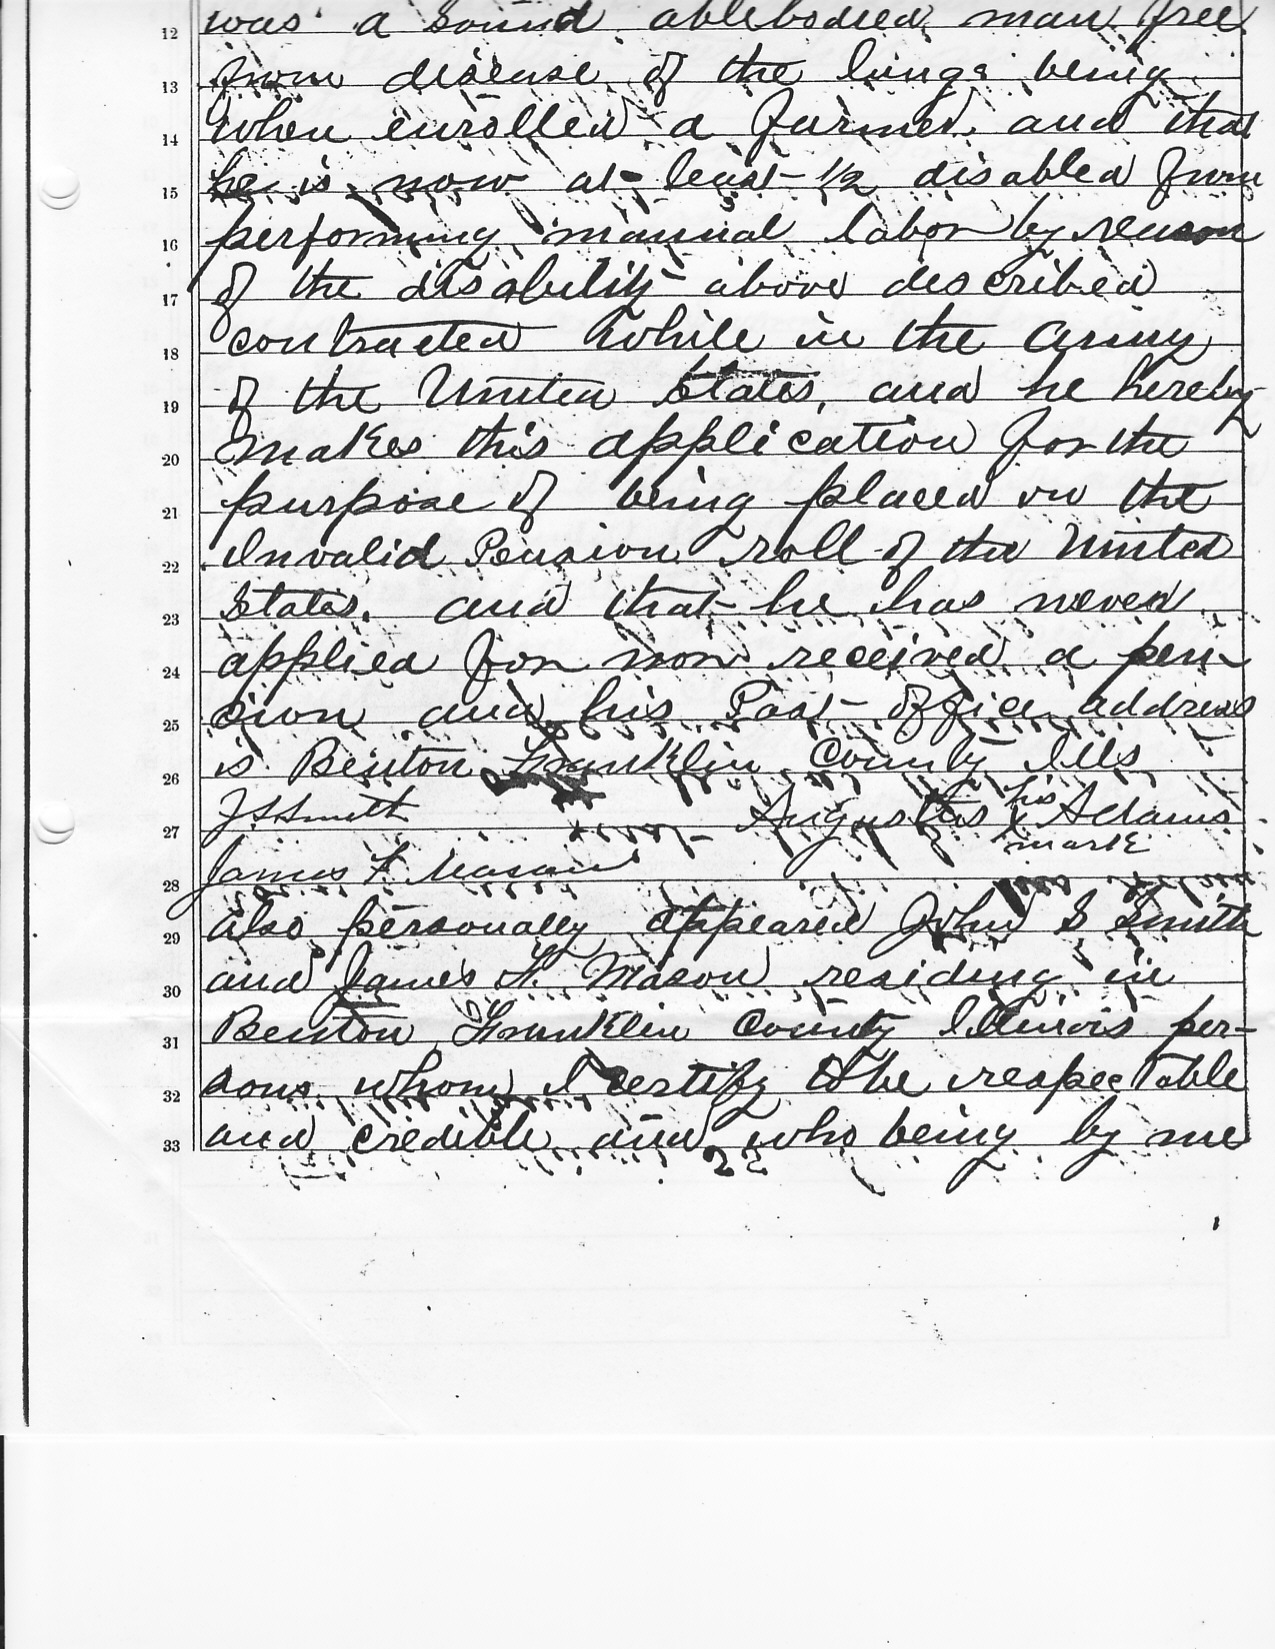 12 was a sound ablebodied man free
13 from disease of the lungs being
14 when enrolled a farmer. and that
15 he is now at least 1/2 disabled from
16 performing manual labor by reason
17 of the disability above described
18 contracted while in the army
19 of the United States, and he hereby
20 makes this application for the
21 purpose of being placed on the
22 Invalid Pension roll of the United
23 States. and that he has never
24 applied for nor received a pen-
25 sion and his Post office address
26 is Benton Franklin County Ills
27 J S Smith Augustus his x mark Adams
28 James F. Mason
29 also personally appeared John S Smith
30 and James F. Mason residing in
31 Benton Franklin County Illinois per-
32 sons whom I certify to be respectable
33 and credible and who being by me